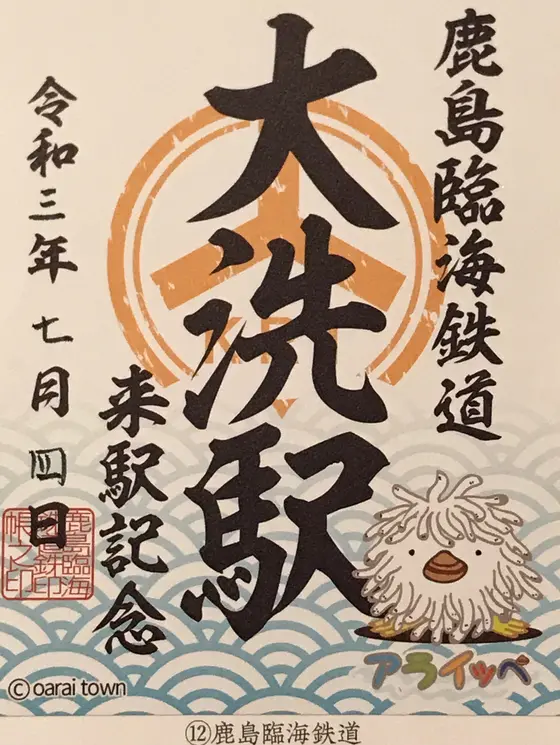 鹿島臨海鉄道
大洗駅
来駅記念
令和三年七月四日
アライッペ
© oarai town
⑫鹿島臨海鉄道